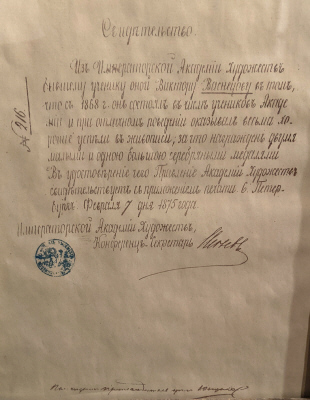 Свидѣтельство.
Изъ Императорской Академіи Художествъ
бывшему ученику оной Виктору Васнецову въ томъ,
что съ 1868 г. онъ состоялъ въ числѣ учениковъ Акаде
міи и при отличномъ поведеніи оказывалъ весьма хо
рошіе успѣхи въ живописи, за что награжденъ двумя
малыми и одною большою серебряными медалями
Въ удостовѣреніе чего Правленіе Академіи Художествъ
свидѣтельствуетъ съ приложеніемъ печати С. Петер
бургъ Февраля 7 дня 1875 года.
Императорской Академіи Художествъ,
Конференцъ-Секретарь Исѣевъ
№ 216